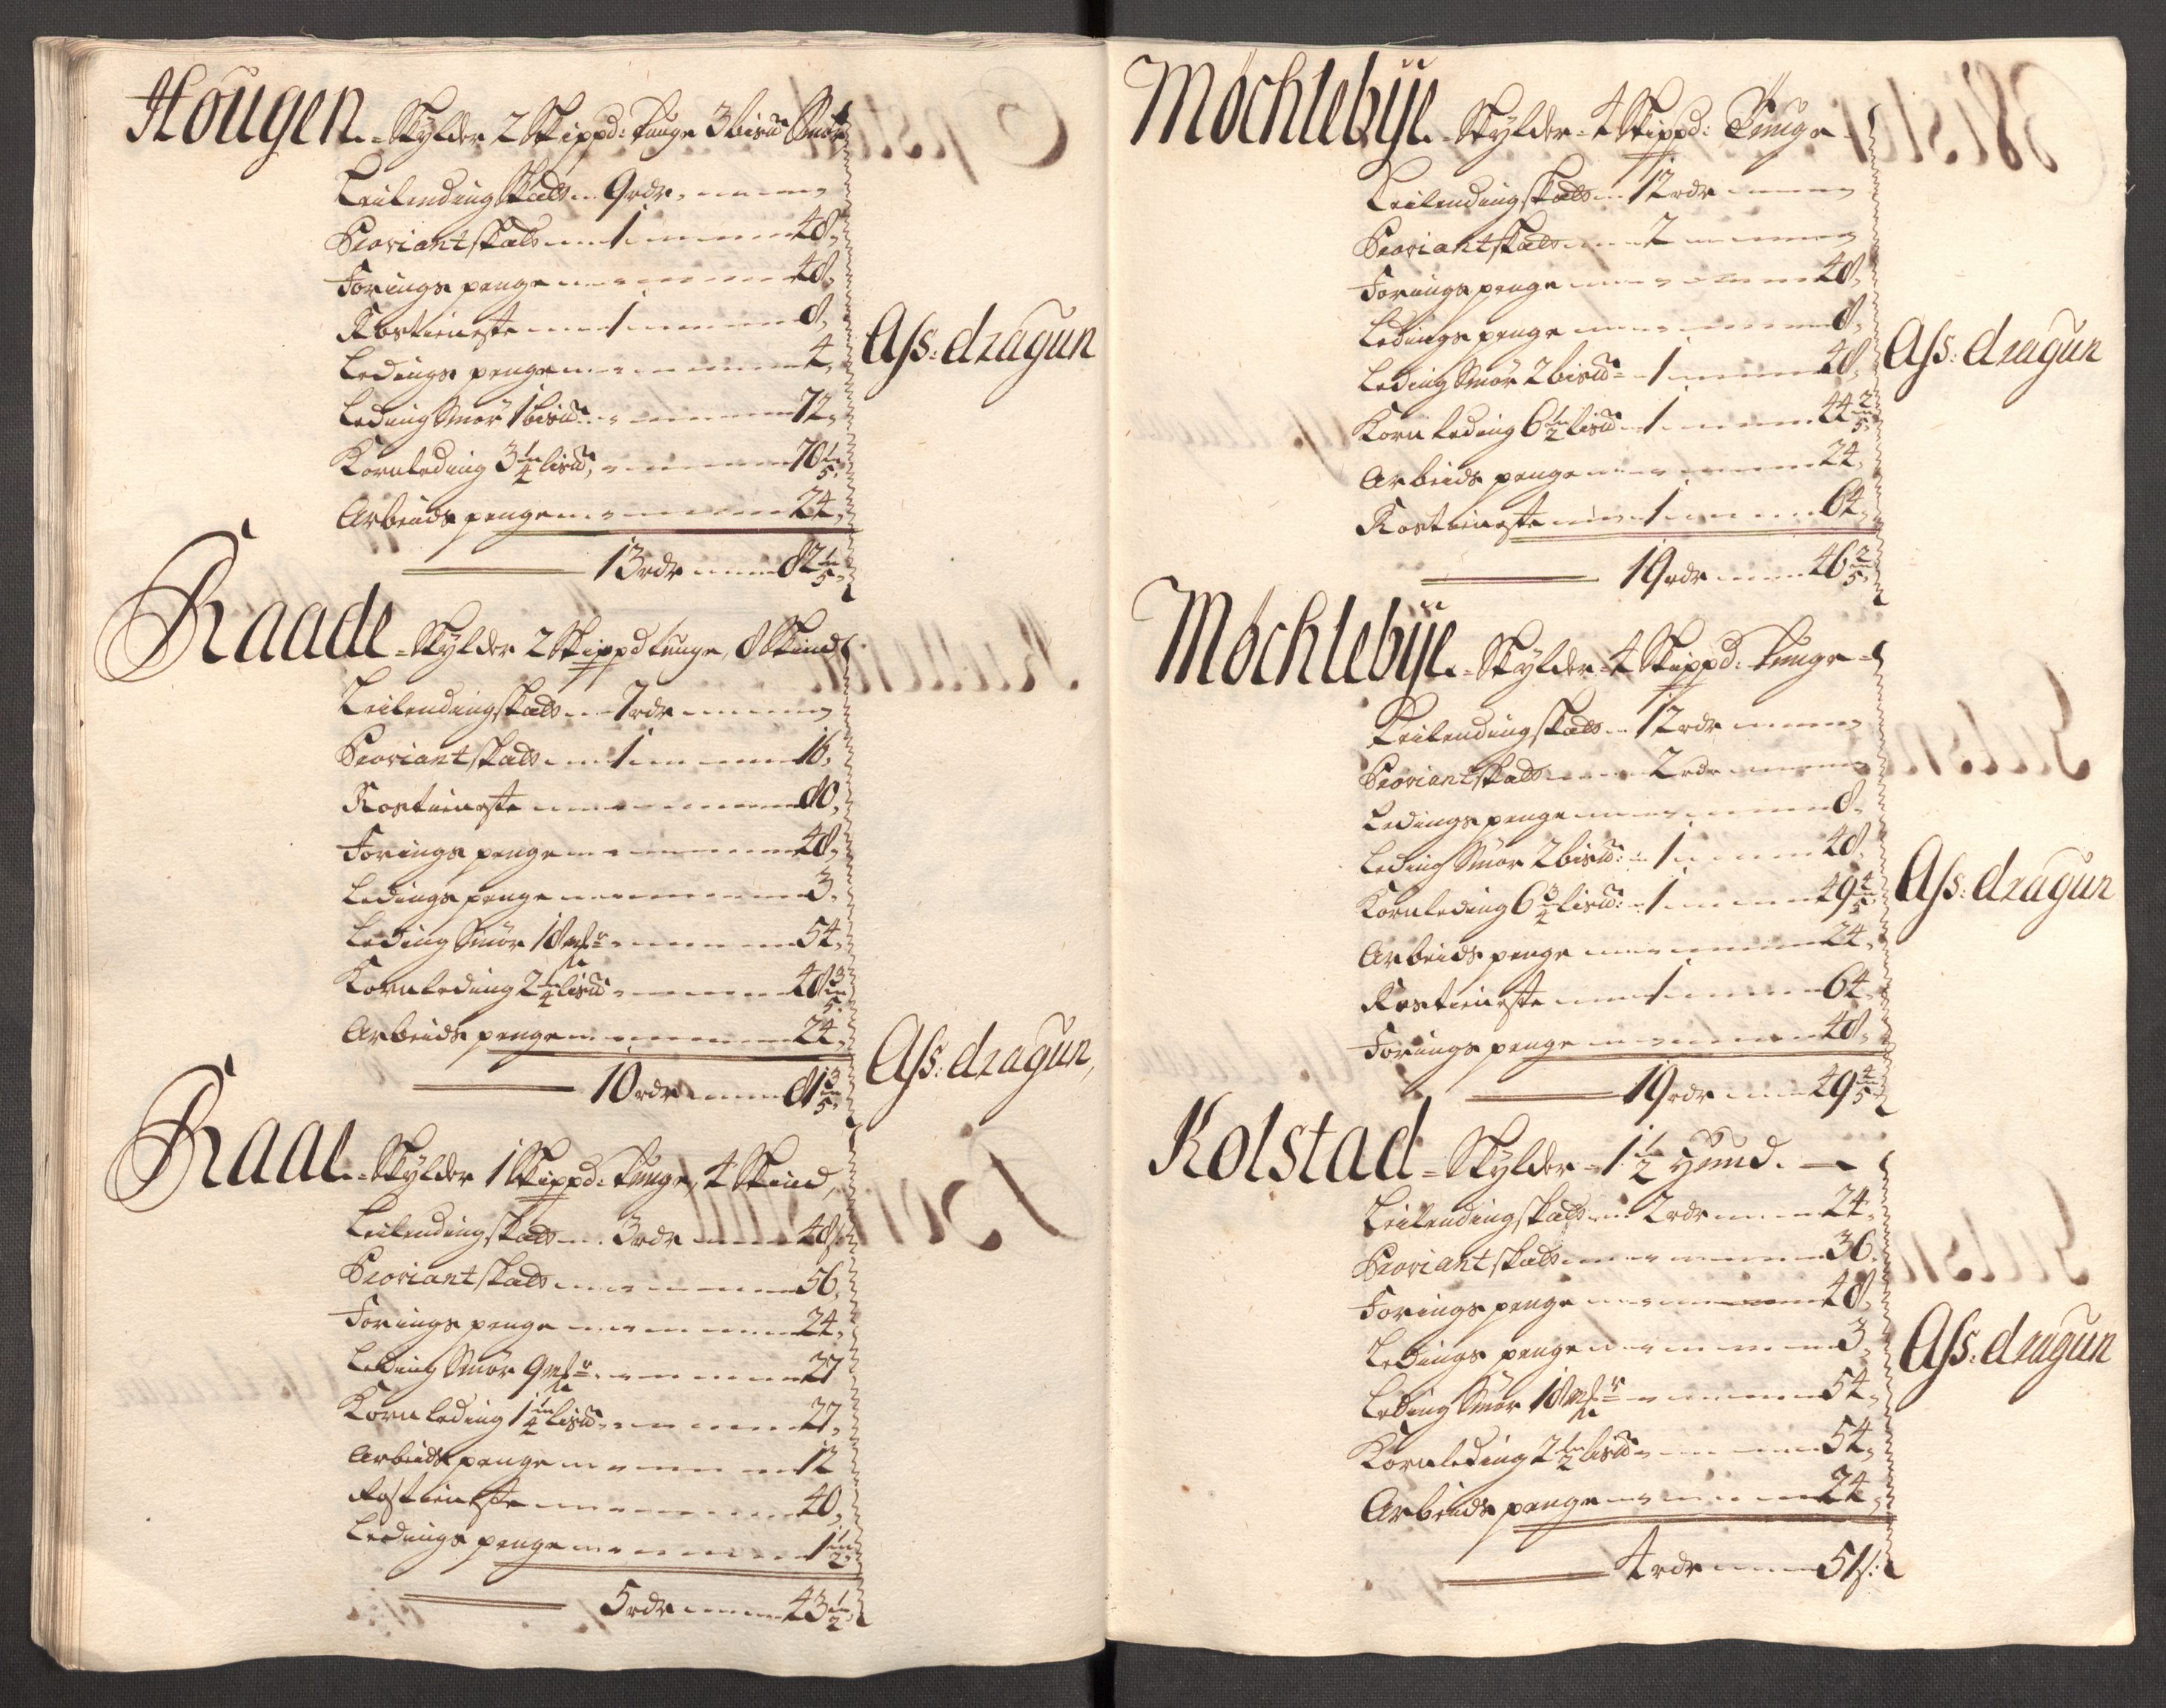 Hougen - Skylder 2 Skippd: tunge 3 bisd Smør
Leilending Skatt 9 rdr
Proviant skatt 1 48
Forings penge 48
Rostieneste 1 8
Ledings penge 4
Leding Smør 1 bisd 72
Kornleding 3 1/4 lisd 70 1/5
Arbeids penge 24
13 rdr 82 1/5
Ass: dragun
Raade - Skylder 2 Skippd tunge, 8 Skind
Leilending skatt 7 rdr
Proviant skatt 1 16
Rostieneste 80
Forings penge 48
Ledings penge 3
Leding Smør 18 mkr 54
Kornleding 2 1/4 lisd 48 3/5
Arbeids penge 24
10 rdr 81 3/5
Ass: dragun
Raae - Skylder 1 Skippd: tunge, 4 Skind
Leilending skatt 3 rdr 48
Proviant skatt 56
Forings penge 24
Leding Smør 9 mkr 27
Kornleding 1 1/4 lisd 27
Arbeids penge 12
Rostieneste 40
Ledings penge 1 1/2
5 rdr 43 1/2
Möchlebÿe - Skylder 4 Skippd: Tunge
Leilending skatt 12 rdr
Proviant skatt 2
Forings penge 48
Ledings penge 8
Leding Smør 2 bisd 1 48
Korn leding 6 1/2 lisd 1 44 2/5
Arbeids penge 24
Rostieneste 1 64
19 rdr 46 2/5
Ass: dragun
Möchlebÿe - Skylder 4 Skippd: tunge
Leilending skatt 12 rdr
Proviant skatt 2 rdr
Ledings penge 8
Leding Smør 2 bisd: 1 48
Kornleding 6 3/4 lisd: 1 49 4/5
Arbeids penge 24
Rostieneste 1 64
Forings penge 48
19 rdr 49 4/5
Ass: dragun
Kolstad - Skylder 1 1/2 Hund.
Leilending skatt 2 rdr 24
Proviant skatt 36
Forings penge 48
Ledings penge 3
Leding Smør 18 mkr 54
Kornleding 2 1/2 lisd 54
Arbeids penge 24
4 rdr 51 s:
Ass: dragun